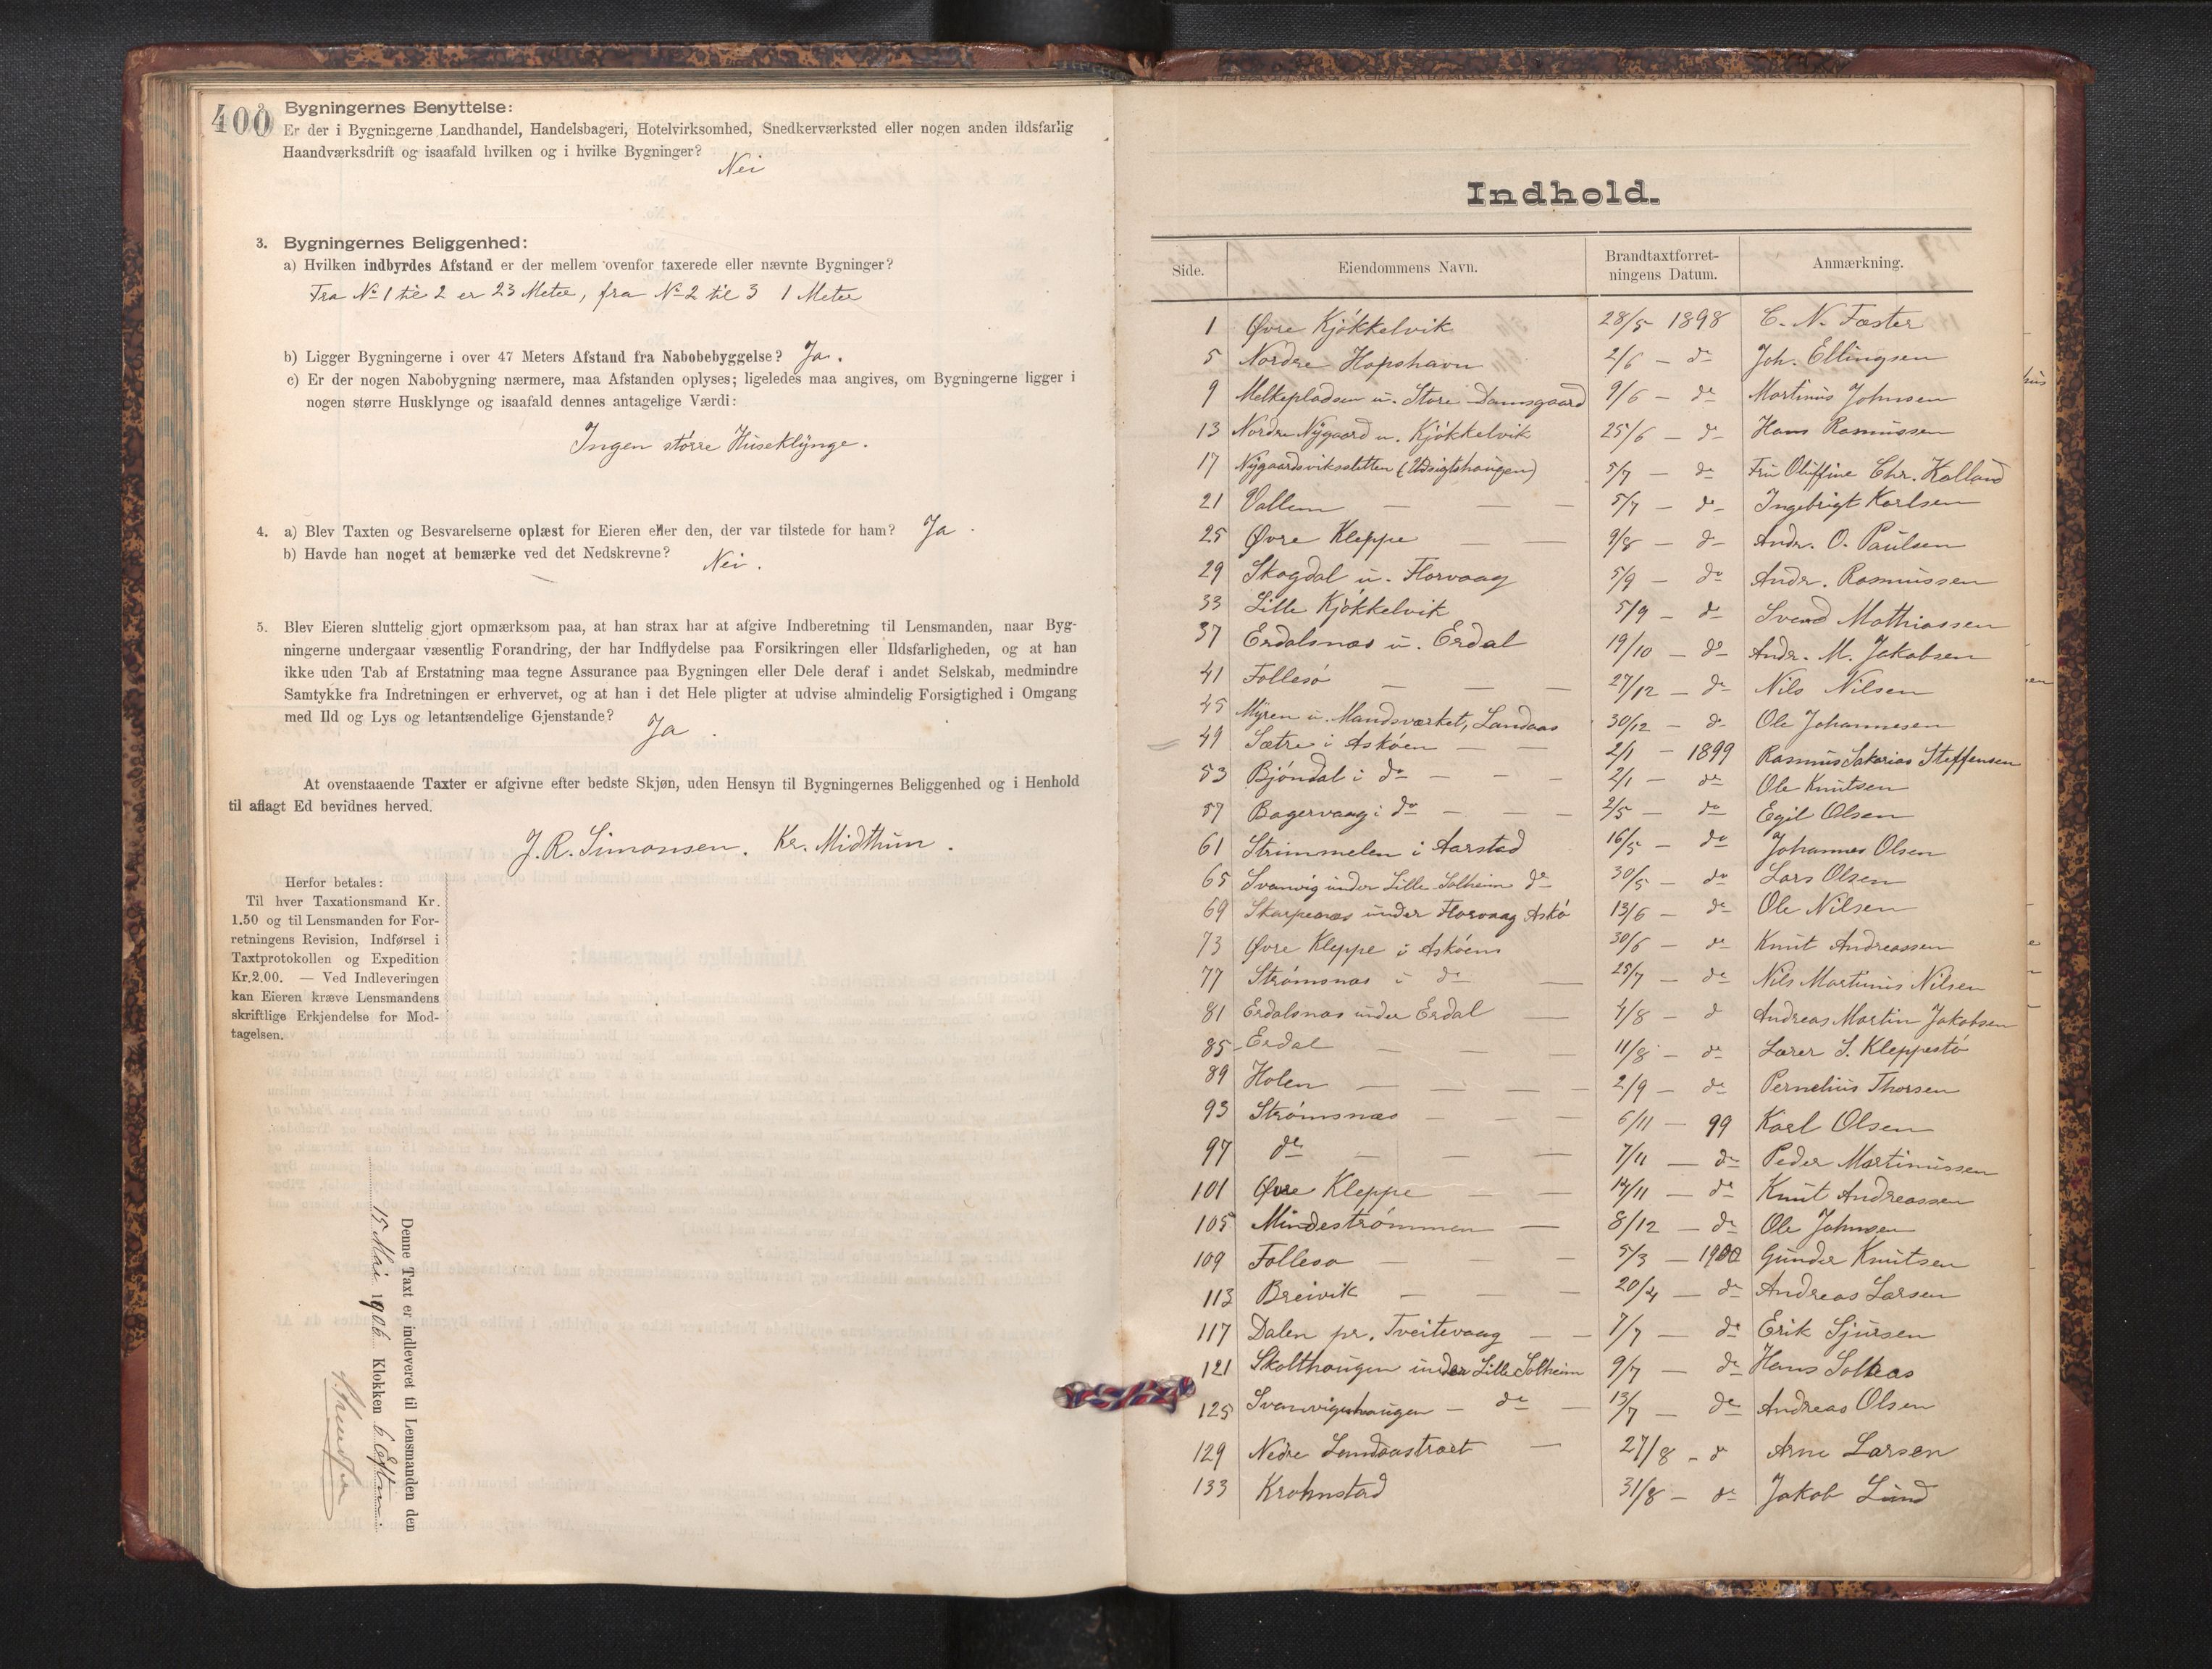 400
2. Bygningernes Benyttelse:
Er der i Bygningerne Landhandel, Handelsbageri, Hotelvirksomhed, Snedkerværksted eller nogen anden ildsfarlig
Haandværksdrift og isaafald hvilken og i hvilke Bygninger?
Nei
3. Bygningernes Beliggenhed:
a) Hvilken indbyrdes Afstand er der mellem ovenfor taxerede eller nævnte Bygninger?
Fra No 1 til 2 er 23 Meter, fra No 2 til 3 1 Meter
b) Ligger Bygningerne i over 47 Meters Afstand fra Nabobebyggelse? Ja.
c) Er der nogen Nabobygning nærmere, maa Afstanden oplyses; ligeledes maa angives, om Bygningerne ligger i
nogen større Husklynge og isaafald dennes antagelige Værdi:
Ingen større Huseklynge.
4. a) Blev Taxten og Besvarelserne oplæst for Eieren eller den, der var tilstede for ham? Ja.
b) Havde han noget at bemærke ved det Nedskrevne? Nei.
5. Blev Eieren sluttelig gjort opmærksom paa, at han strax har at afgive Indberetning til Lensmanden, naar Byg-
ningerne undergaar væsentlig Forandring, der har Indflydelse paa Forsikringen eller Ildsfarligheden, og at han
ikke uden Tab af Erstatning maa tegne Assurance paa Bygningen eller Dele deraf i andet Selskab, medmindre
Samtykke fra Indretningen er erhvervet, og at han i det Hele pligter at udvise almindelig Forsigtighed i Omgang
med Ild og Lys og letantændelige Gjenstande?
Ja.
At ovenstaaende Taxter er afgivne efter bedste Skjøn, uden Hensyn til Bygningernes Beliggenhed og i Henhold
til aflagt Ed bevidnes herved.
J. R. Simonsen. Kr. Midthun.
Herfor betales:
Til hver Taxationsmand Kr.
1.50 og til Lensmanden for For-
retningens Revision, Indførsel i
Taxtprotokollen og Expedition
Kr. 2.00. — Ved Indleveringen
kan Eieren kræve Lensmandens
skriftlige Erkjendelse for Mod-
tagelsen.
Denne Taxt er indleveret til Lensmanden den
15 Mai 1906 Klokken 6 Eftm.
Indhold.
Side. Eiendommens Navn. Brandtaxtforret-ningens Datum. Anmærkning.
1 Øvre Kjøkkelvik 28/5 1898 C. N. Faster
5 Nordre Hopshavn 2/6 — do Joh. Ellingsen
9 Melkepladsen u. Store Damsgaard 9/6 — do Martinus Johnsen
13 Nordre Nygaard u. Kjøkkelvik 25/6 — do Hans Rasmussen
17 Nygaardsviksletten (Udsigtshaugen) 5/7 — do Fru Oluffine Chr. Kolland
21 Vallem — — — 5/7 — do Ingebrigt Karlsen
25 Øvre Kleppe — — 9/8 — do Andr. O. Paulsen
29 Skogdal u. Florvaag 5/9 — do Andr. Rasmussen
33 Lille Kjøkkelvik 5/9 — do Svend Mathiassen
37 Erdalsnæs u. Erdal 19/10 — do Andr. M. Jakobsen
41 Follesø — — — 27/12 — do Nils Nilsen
45 Myren u. Mandsværket, Landaas 30/12 — do Ole Johannesen
49 Sætre i Askøen — — 2/1 — 1899 Rasmus Sakarias Steffensen
53 Bjøndal i do — — — 2/1 — do Ole Knutsen
57 Bagervaag i do — — — 2/5 — do Egil Olsen
61 Strimmelen i Aarstad 16/5 — do Johannes Olsen
65 Svanvig under Lille Solheim do 30/5 — do Lars Olsen
69 Skarpenæs under Florvaag Askø 13/6 — do Ole Nilsen
73 Øvre Kleppe i Askøens 30/6 — do Knut Andreassen
77 Strømsnæs i do — 25/7 — do Nils Martinus Nilsen
81 Erdalsnæs under Erdal — 4/8 — do Andreas Martin Jakobsen
85 Erdal — — — 11/8 — do Lærer S. Kleppestø
89 Holen — — — — 2/9 — do Pernelius Thorsen
93 Strømsnæs — — — 6/11 — 99 Karl Olsen
97 do — — — 7/11 — do Peder Martinussen
101 Øvre Kleppe — — 14/11 — do Knut Andreassen
105 Mindestrømmen — 8/12 — do Ole Johnsen
109 Follesø — — — 5/3 — 1900 Gunder Knutsen
113 Breivik — — — 20/4 — do Andreas Larsen
117 Dalen pr. Tveitevaag — — 7/7 — do Erik Sjursen
121 Skolthaugen under Lille Solheim 9/7 — do Hans Solhaas
125 Svanvigshaugen — do — 13/7 — do Andreas Olsen
129 Nedre Landaastræt — 27/8 — do Arne Larsen
133 Krohnstad 31/8 — do Jakob Lund